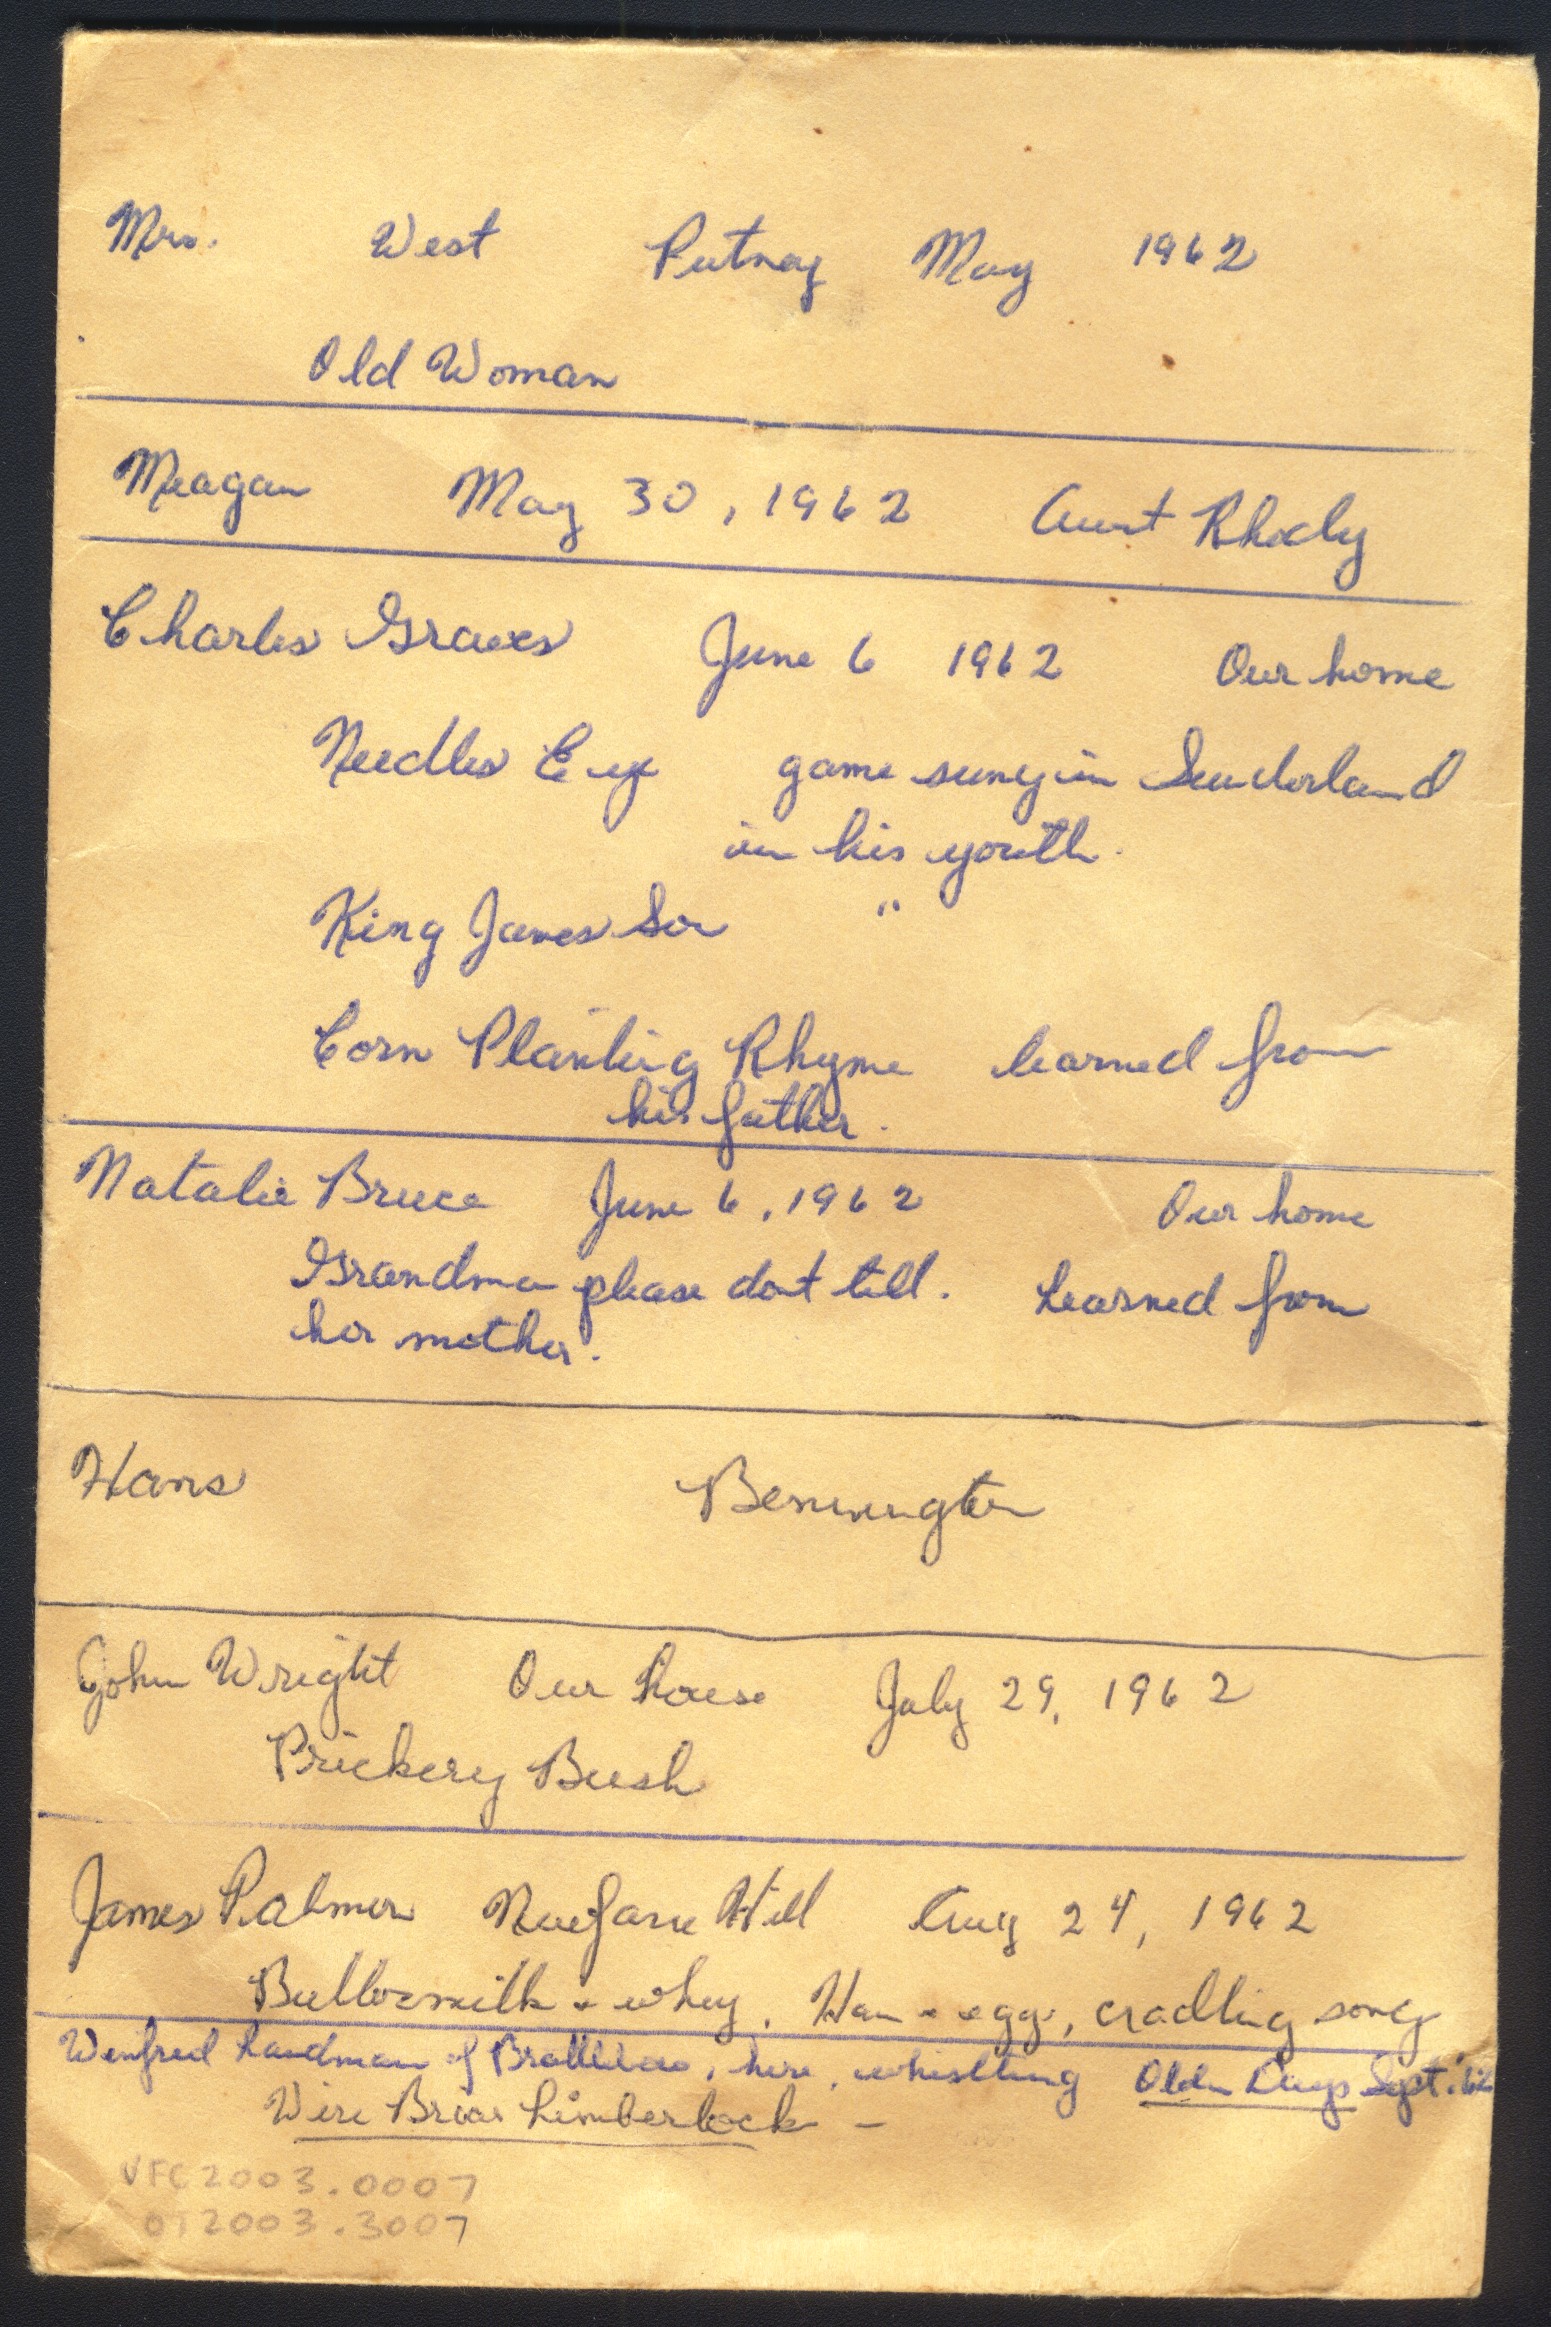 Mrs. West Putney May 1962
Old Woman
Meagan May 30, 1962 Aunt Rhody
Charles Graves June 6 1962 Our home
Needles Eye game sung in Sunderland
in his youth.
King James Son "
Corn Planting Rhyme learned from
his father.
Natalie Bruce June 6, 1962 Our home
Grandma please dont tell. Learned from
her mother.
Hans Bennington
John Wright Our house July 29, 1962
Prickery Bush
James Palmer Newfane Hill Aug 24, 1962
Buttermilk & whey, Ham & eggs, cradling song
Winfred Landman of Brattleboro, here, whistling Olden Days Sept. '62
Wire Briar Limberlock -
VFC2003.0007
OT2003.3007